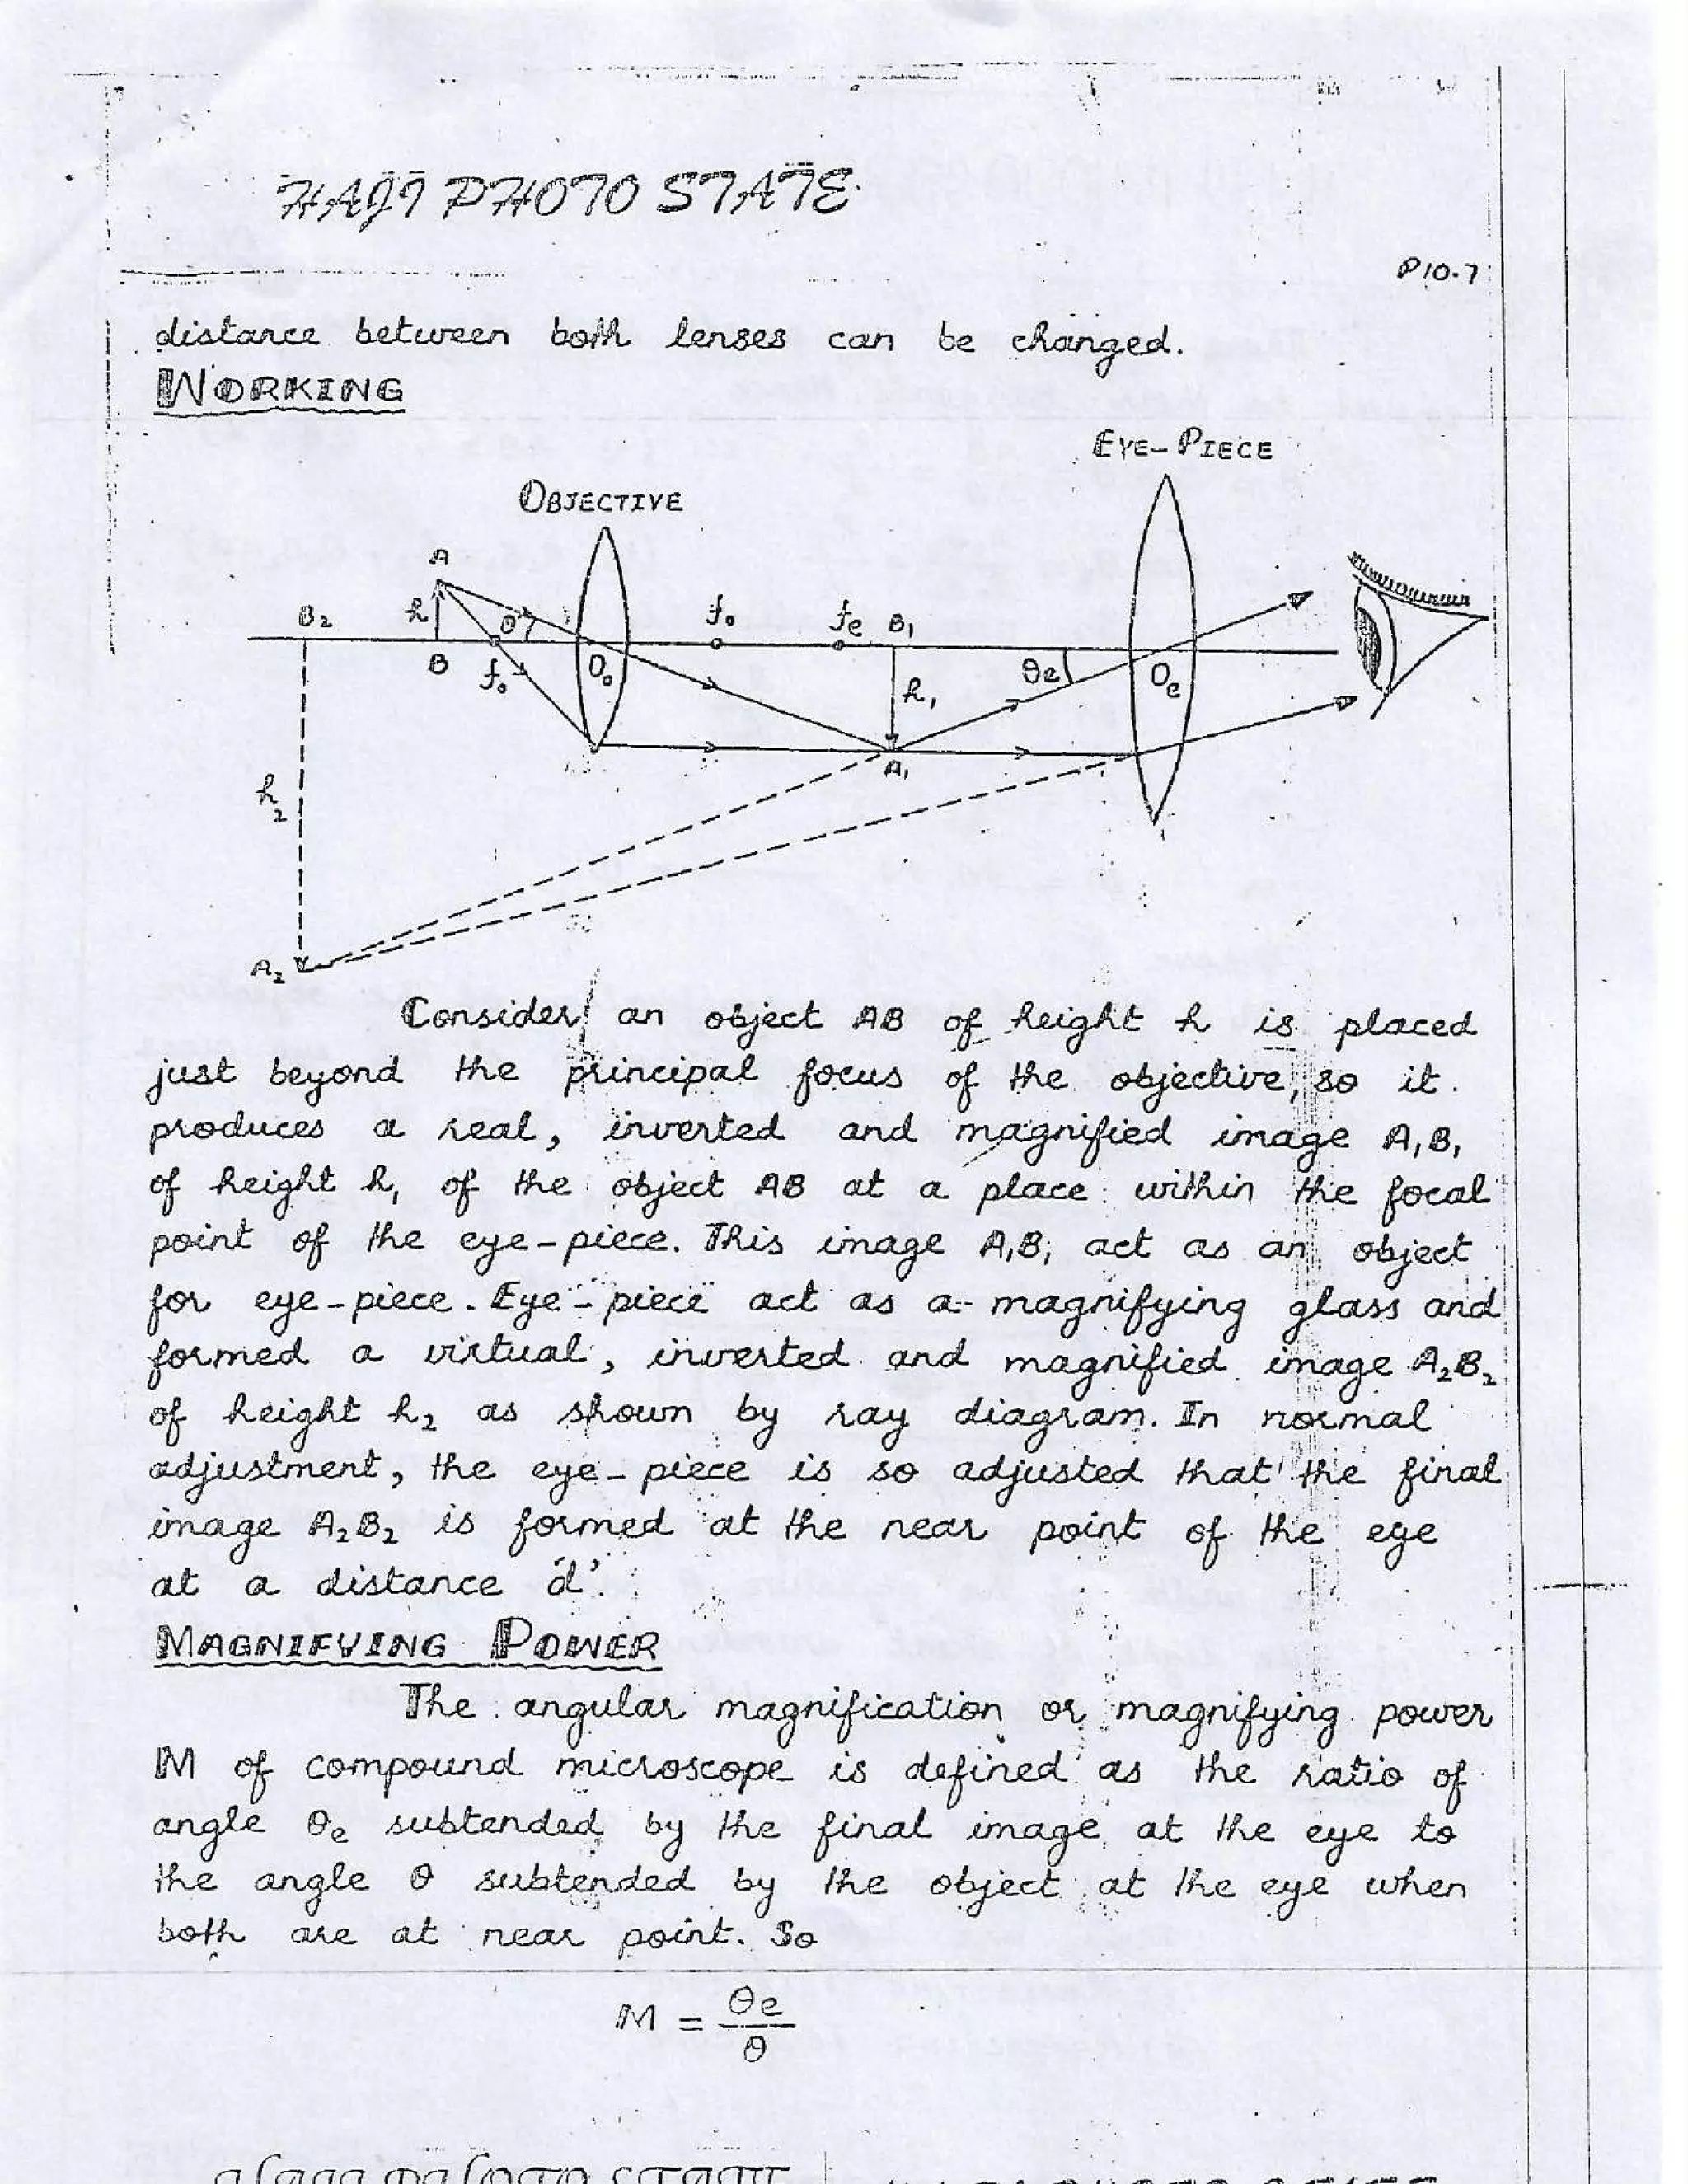 HAJI PHOTO STATE
P10.7
distance between both lenses can be changed.
WORKING
EYE-PIECE
OBJECTIVE
A
B₂ h θ f₀ fe B₁
B f₀ O₀ θe Oe
h₁
A₁
h₂
A₂
Consider an object AB of height h is placed
just beyond the principal focus of the objective, so it
produces a real, inverted and magnified image A₁B₁
of height h₁ of the object AB at a place within the focal
point of the eye-piece. This image A₁B₁ act as an object
for eye-piece. Eye-piece act as a magnifying glass and
formed a virtual, inverted and magnified image A₂B₂
of height h₂ as shown by ray diagram. In normal
adjustment, the eye-piece is so adjusted that the final
image A₂B₂ is formed at the near point of the eye
at a distance 'd'.
MAGNIFYING POWER
The angular magnification or magnifying power
M of compound microscope is defined as the ratio of
angle θe subtended by the final image at the eye to
the angle θ subtended by the object at the eye when
both are at near point. So
M = θe/θ